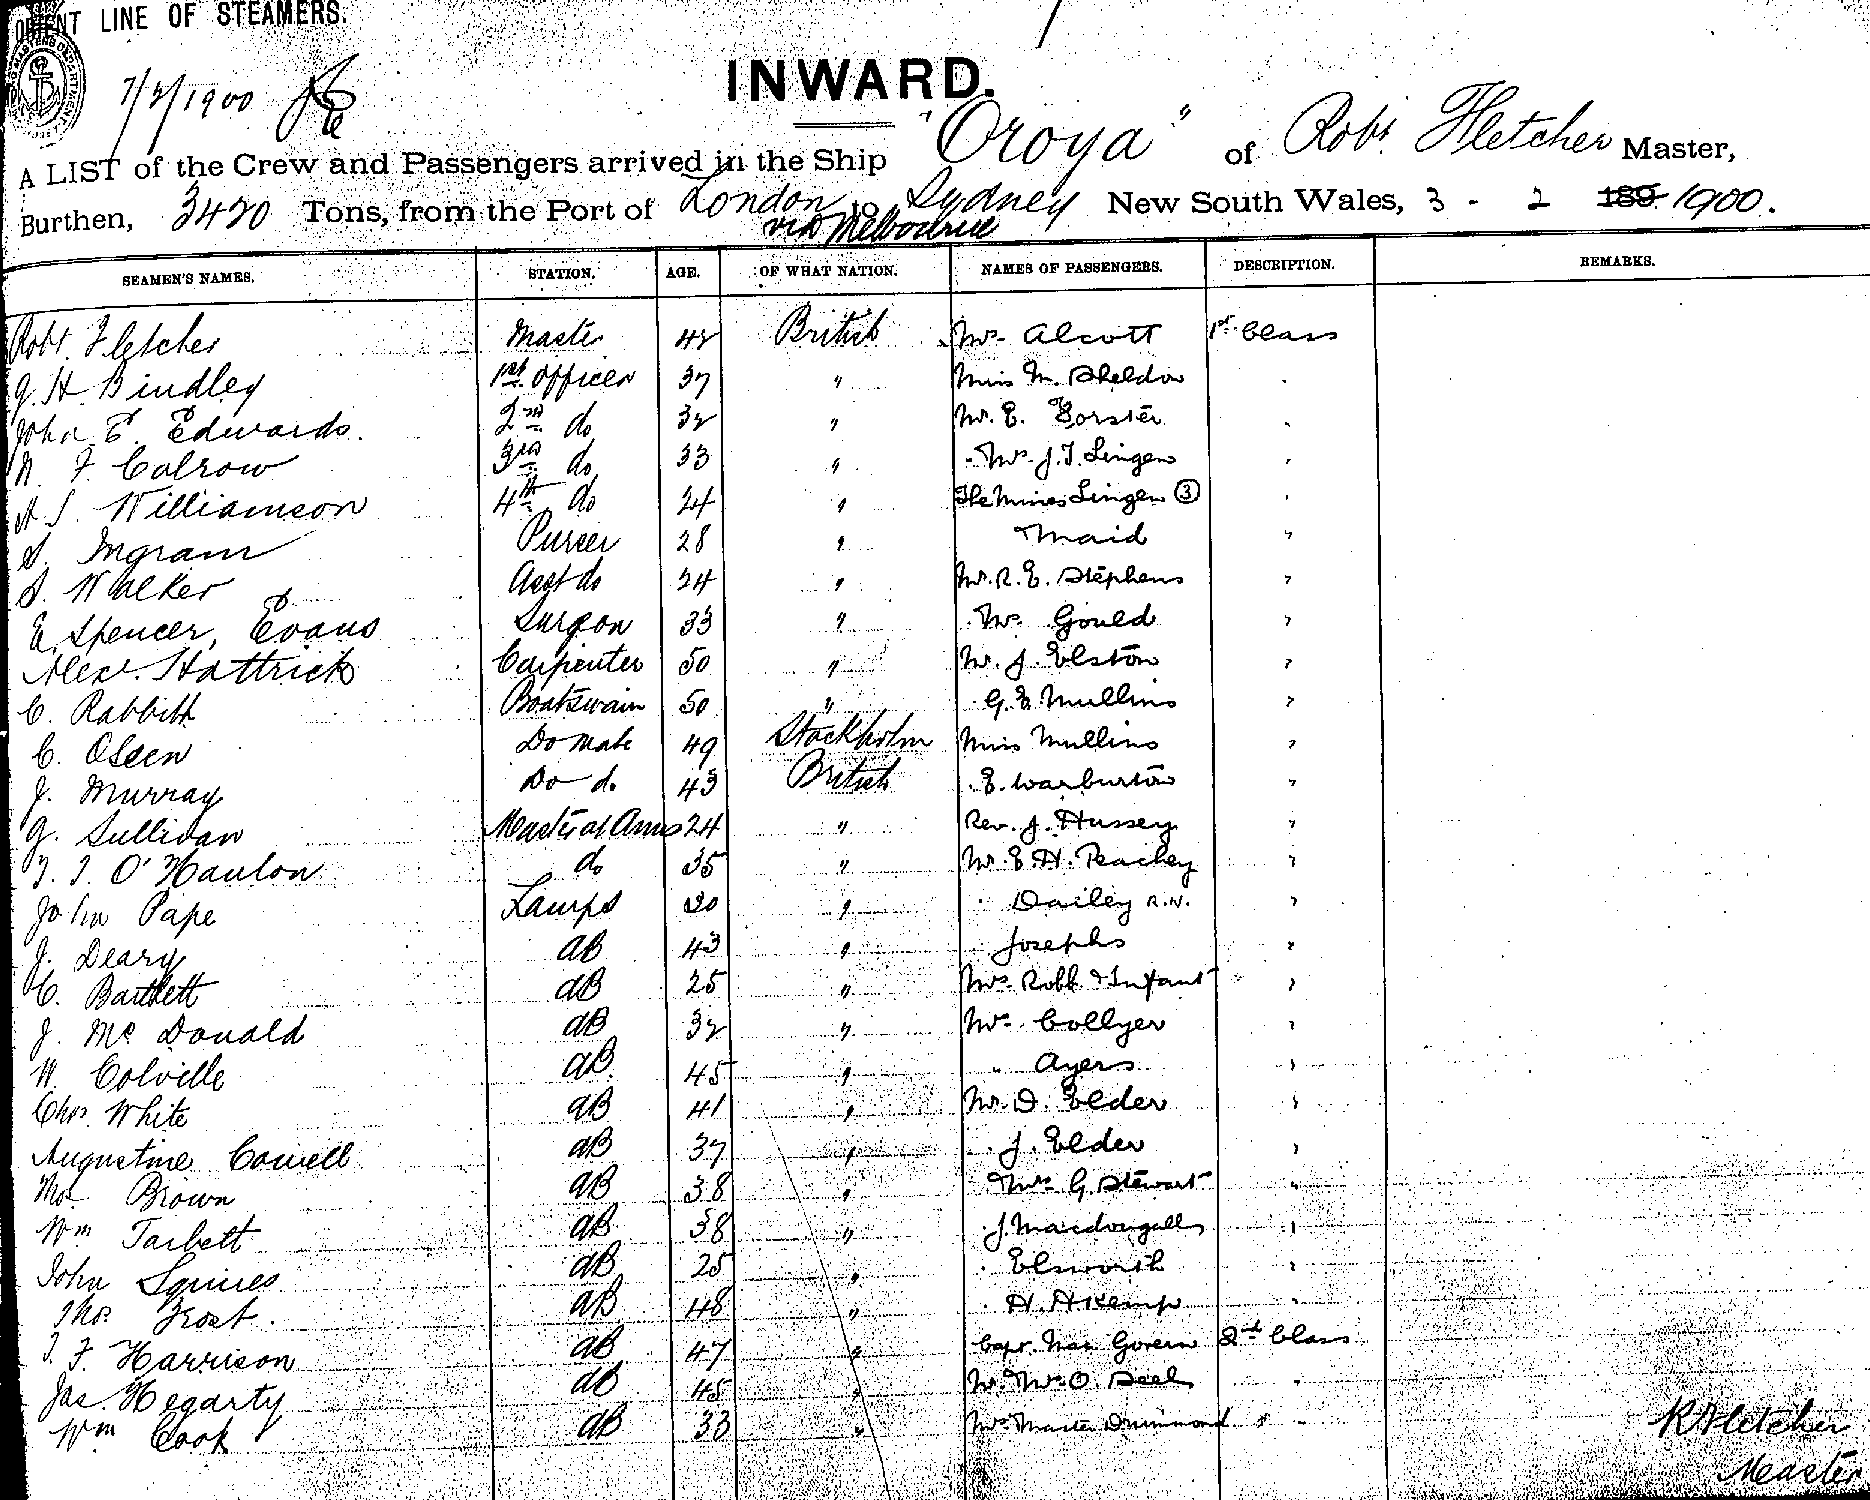 ORIENT LINE OF STEAMERS.
7/2/1900
INWARD.
A LIST of the Crew and Passengers arrived in the Ship "Oroya" of Robt. Fletcher Master,
Burthen, 3420 Tons, from the Port of London to Sydney New South Wales, 3 - 2 189 1900.
via Melbourne
SEAMEN'S NAMES. STATION. AGE. OF WHAT NATION. NAMES OF PASSENGERS. DESCRIPTION. REMARKS.
Robt. Fletcher Master 42 British Mrs Alcott 1st Class
J. H. Bindley 1st Officer 37 " Miss M. Sheldon "
John E. Edwards. 2nd do 32 " Mr. E. Forster "
N. F. Calrow 3rd do 33 " Mrs J. T. Lingen "
A. S. Williamson 4th do 24 " The Misses Lingen (3) "
S. Ingram Purser 28 " Maid "
S. Walker Asst do 24 " Mr. R. E. Stephens "
E. Spencer, Evans Surgeon 33 " Mrs Gould "
Alexr. Hattrick Carpenter 50 " Mr. J. Elston "
C. Rabbitt Boatswain 50 " G. E. Mullins "
C. Olsen Do Mate 49 Stockholm Miss Mullins "
J. Murray Do do 43 British E. Warburton "
J. Sullivan Master at Arms 24 " Rev. J. Hussey "
T. J. O'Hanlon do 35 " Mr. E. H. Peachey "
John Pape Lamps 30 " Dailey R.N. "
J. Deary AB 43 " Josephs "
C. Bartlett AB 25 " Mrs Robb & Infant "
J. Mc Donald AB 32 " Mrs Collyer "
W. Colville AB 45 " " Ayers "
Chas. White AB 41 " Mr. D. Elder "
Augustine Cowell AB 37 " J. Elder "
Brown AB 38 " Mrs G. Stewart "
Wm Tarbett AB 38 " J. Macdougall "
John Squires AB 25 " Elsworth "
Thos. Frost. AB 48 " H. H. Kemp "
T. F. Harrison AB 47 " Capt. Govern 2nd Class
Jas. Hegarty AB 45 " Mr. Mrs O. "
Wm Cook AB 33 " Mrs Master Drummond "
R Fletcher
Master